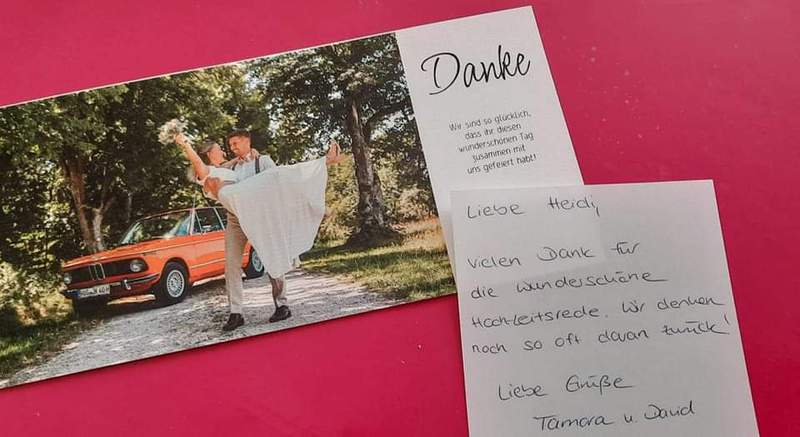 Danke
Wir sind so glücklich,
dass ihr diesen
wunderschönen Tag
zusammen mit
uns gefeiert habt!
Liebe Heidi,
vielen Dank für
die wunderschöne
Hochzeitsrede. Wir denken
noch so oft daran zurück!
Liebe Grüße
Tamara u. David